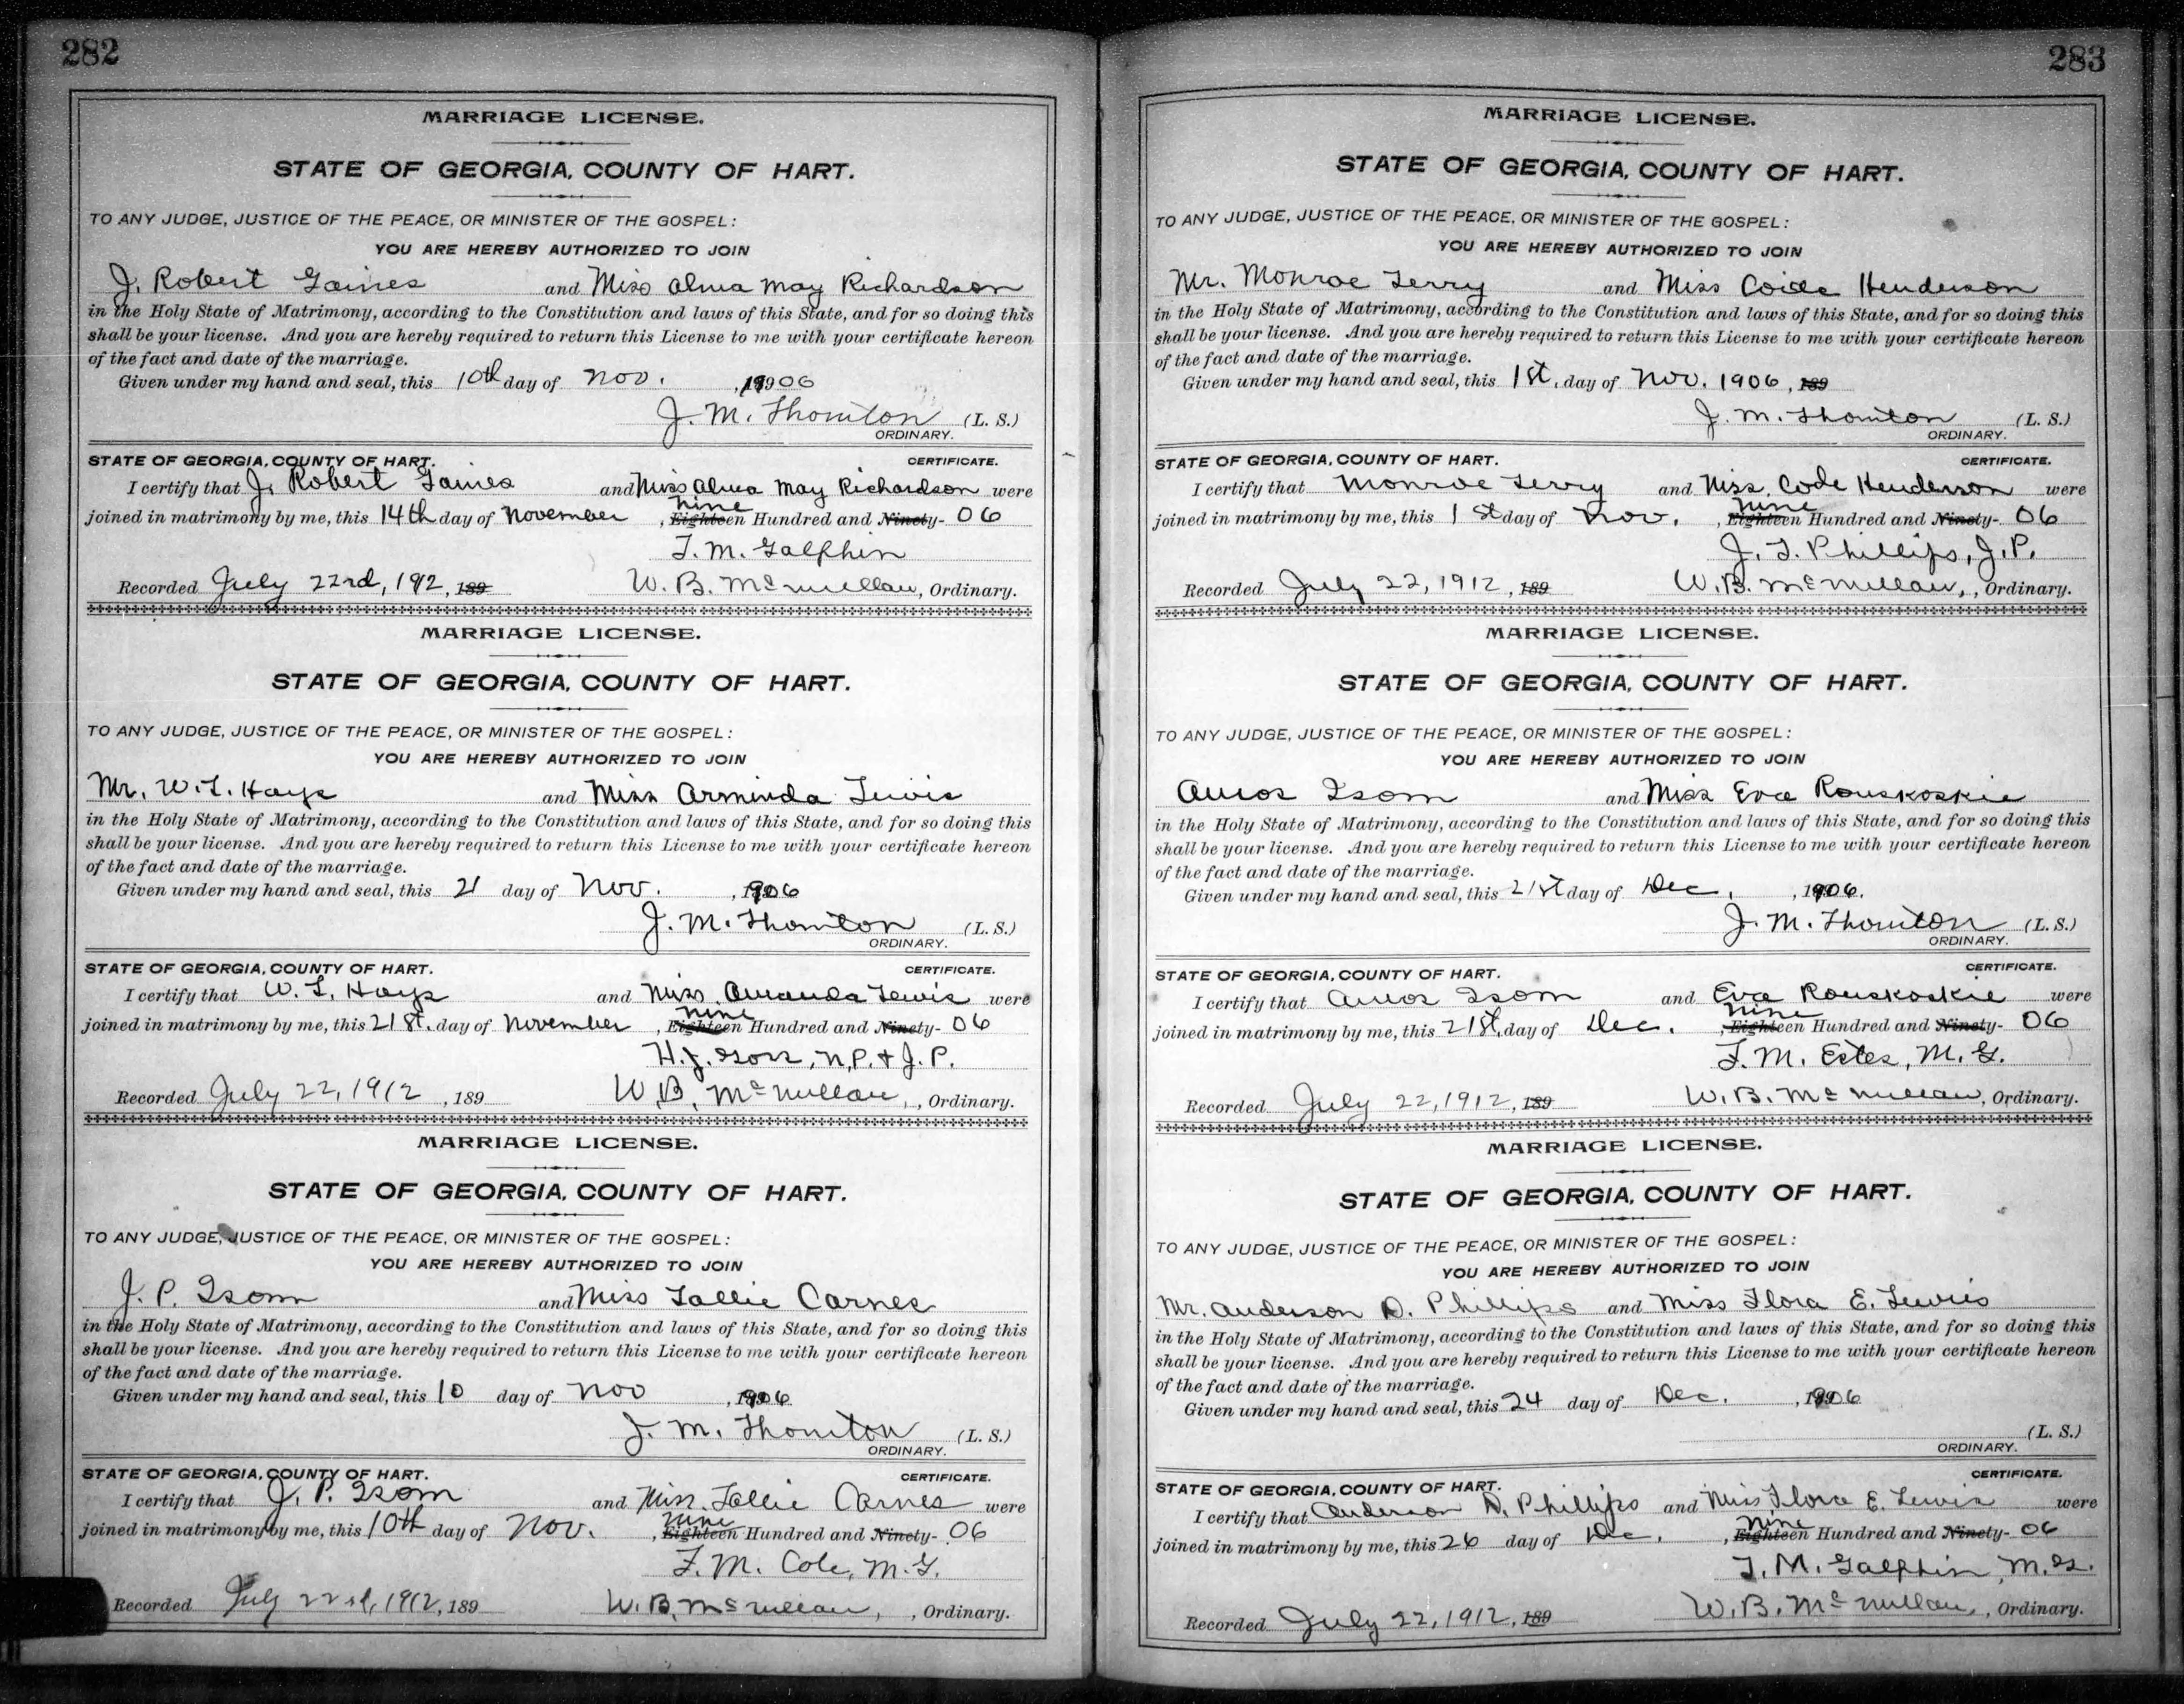 282
MARRIAGE LICENSE.
STATE OF GEORGIA, COUNTY OF HART.
TO ANY JUDGE, JUSTICE OF THE PEACE, OR MINISTER OF THE GOSPEL:
YOU ARE HEREBY AUTHORIZED TO JOIN
J. Robert Gaines and Miss Alma May Richardson
in the Holy State of Matrimony, according to the Constitution and laws of this State, and for so doing this
shall be your license. And you are hereby required to return this License to me with your certificate hereon
of the fact and date of the marriage.
Given under my hand and seal, this 10th day of Nov. , 1906
J. M. Thornton (L. S.)
ORDINARY.
STATE OF GEORGIA, COUNTY OF HART. CERTIFICATE.
I certify that J. Robert Gaines and Miss Alma May Richardson were
nine
joined in matrimony by me, this 14th day of November , Eighteen Hundred and Ninety- 06
T. M. Galphin
Recorded July 22rd, 192, 189 W. B. McMullan, Ordinary.
MARRIAGE LICENSE.
STATE OF GEORGIA, COUNTY OF HART.
TO ANY JUDGE, JUSTICE OF THE PEACE, OR MINISTER OF THE GOSPEL:
YOU ARE HEREBY AUTHORIZED TO JOIN
Mr. W. L. Hays and Miss Arminda Lewis
in the Holy State of Matrimony, according to the Constitution and laws of this State, and for so doing this
shall be your license. And you are hereby required to return this License to me with your certificate hereon
of the fact and date of the marriage.
Given under my hand and seal, this 21 day of Nov. , 1906
J. M. Thornton (L. S.)
ORDINARY.
STATE OF GEORGIA, COUNTY OF HART. CERTIFICATE.
I certify that W. L. Hays and Miss. Amanda Lewis were
nine
joined in matrimony by me, this 21st. day of November , Eighteen Hundred and Ninety- 06
H. J. Goss, N.P. & J. P.
Recorded July 22, 1912 , 189 W. B. McMullan, , Ordinary.
MARRIAGE LICENSE.
STATE OF GEORGIA, COUNTY OF HART.
TO ANY JUDGE, JUSTICE OF THE PEACE, OR MINISTER OF THE GOSPEL:
YOU ARE HEREBY AUTHORIZED TO JOIN
J. P. Isom and Miss Lallie Carnes
in the Holy State of Matrimony, according to the Constitution and laws of this State, and for so doing this
shall be your license. And you are hereby required to return this License to me with your certificate hereon
of the fact and date of the marriage.
Given under my hand and seal, this 10 day of Nov , 1906
J. M. Thornton (L. S.)
ORDINARY.
STATE OF GEORGIA, COUNTY OF HART. CERTIFICATE.
I certify that J. P. Isom and Miss. Lallie Carnes were
nine
joined in matrimony by me, this 10th day of Nov. , Eighteen Hundred and Ninety- 06
F. M. Cole, M. G.
Recorded July 22rd, 1912, 189 W. B. McMullan, , Ordinary.
283
MARRIAGE LICENSE.
STATE OF GEORGIA, COUNTY OF HART.
TO ANY JUDGE, JUSTICE OF THE PEACE, OR MINISTER OF THE GOSPEL:
YOU ARE HEREBY AUTHORIZED TO JOIN
Mr. Monroe Terry and Miss Henderson
in the Holy State of Matrimony, according to the Constitution and laws of this State, and for so doing this
shall be your license. And you are hereby required to return this License to me with your certificate hereon
of the fact and date of the marriage.
Given under my hand and seal, this 1st. day of Nov. 1906, 189
J. M. Thornton (L. S.)
ORDINARY.
STATE OF GEORGIA, COUNTY OF HART. CERTIFICATE.
I certify that Monroe Terry and Miss. Code Henderson were
nine
joined in matrimony by me, this 1st day of Nov. , Eighteen Hundred and Ninety- 06
J. T. Phillips, J. P.
Recorded July 22, 1912, 189 W. B. McMullan, , Ordinary.
MARRIAGE LICENSE.
STATE OF GEORGIA, COUNTY OF HART.
TO ANY JUDGE, JUSTICE OF THE PEACE, OR MINISTER OF THE GOSPEL:
YOU ARE HEREBY AUTHORIZED TO JOIN
Amos Isom and Miss Eva Rouskoskie
in the Holy State of Matrimony, according to the Constitution and laws of this State, and for so doing this
shall be your license. And you are hereby required to return this License to me with your certificate hereon
of the fact and date of the marriage.
Given under my hand and seal, this 21st day of Dec. , 1906.
J. M. Thornton (L. S.)
ORDINARY.
STATE OF GEORGIA, COUNTY OF HART. CERTIFICATE.
I certify that Amos Isom and Eva Rouskoskie were
nine
joined in matrimony by me, this 21st, day of Dec. , Eighteen Hundred and Ninety- 06
F. M. Estes, M. G.
Recorded July 22, 1912, 189 W. B. McMullan, Ordinary.
MARRIAGE LICENSE.
STATE OF GEORGIA, COUNTY OF HART.
TO ANY JUDGE, JUSTICE OF THE PEACE, OR MINISTER OF THE GOSPEL:
YOU ARE HEREBY AUTHORIZED TO JOIN
Mr. Anderson D. Phillips and Miss Flora E. Lewis
in the Holy State of Matrimony, according to the Constitution and laws of this State, and for so doing this
shall be your license. And you are hereby required to return this License to me with your certificate hereon
of the fact and date of the marriage.
Given under my hand and seal, this 24 day of Dec. , 1906
(L. S.)
ORDINARY.
STATE OF GEORGIA, COUNTY OF HART. CERTIFICATE.
I certify that Anderson D. Phillips and Miss Flora E. Lewis were
nine
joined in matrimony by me, this 26 day of De. , Eighteen Hundred and Ninety- 06
T. M. Galphin, M. G.
Recorded July 22, 1912, 189 W. B. McMullan, , Ordinary.